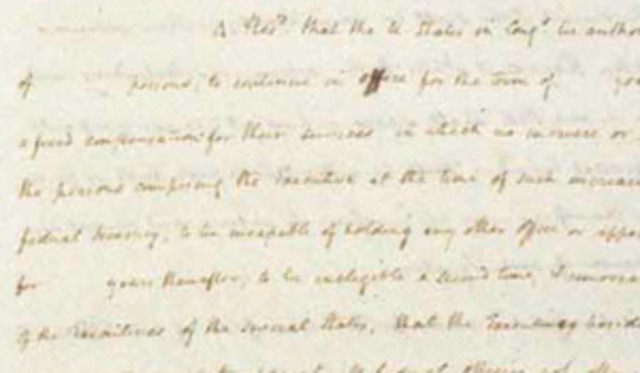 4. Resd. that the U. States in Congs. be author
of persons, to continue in office for the term of ye
a fixed compensation for their services in which no increase or
the persons composing the Executive at the time of such increase
federal treasury, to be incapable of holding any other office or appo
for years thereafter, to be ineligible a second time, & removea
by the Executives of the several States, that the Executives besid